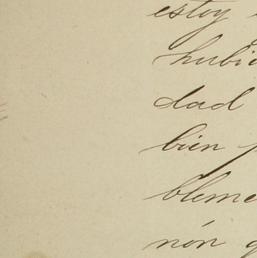 estoy
hubi
dad
bien
bleme
nón